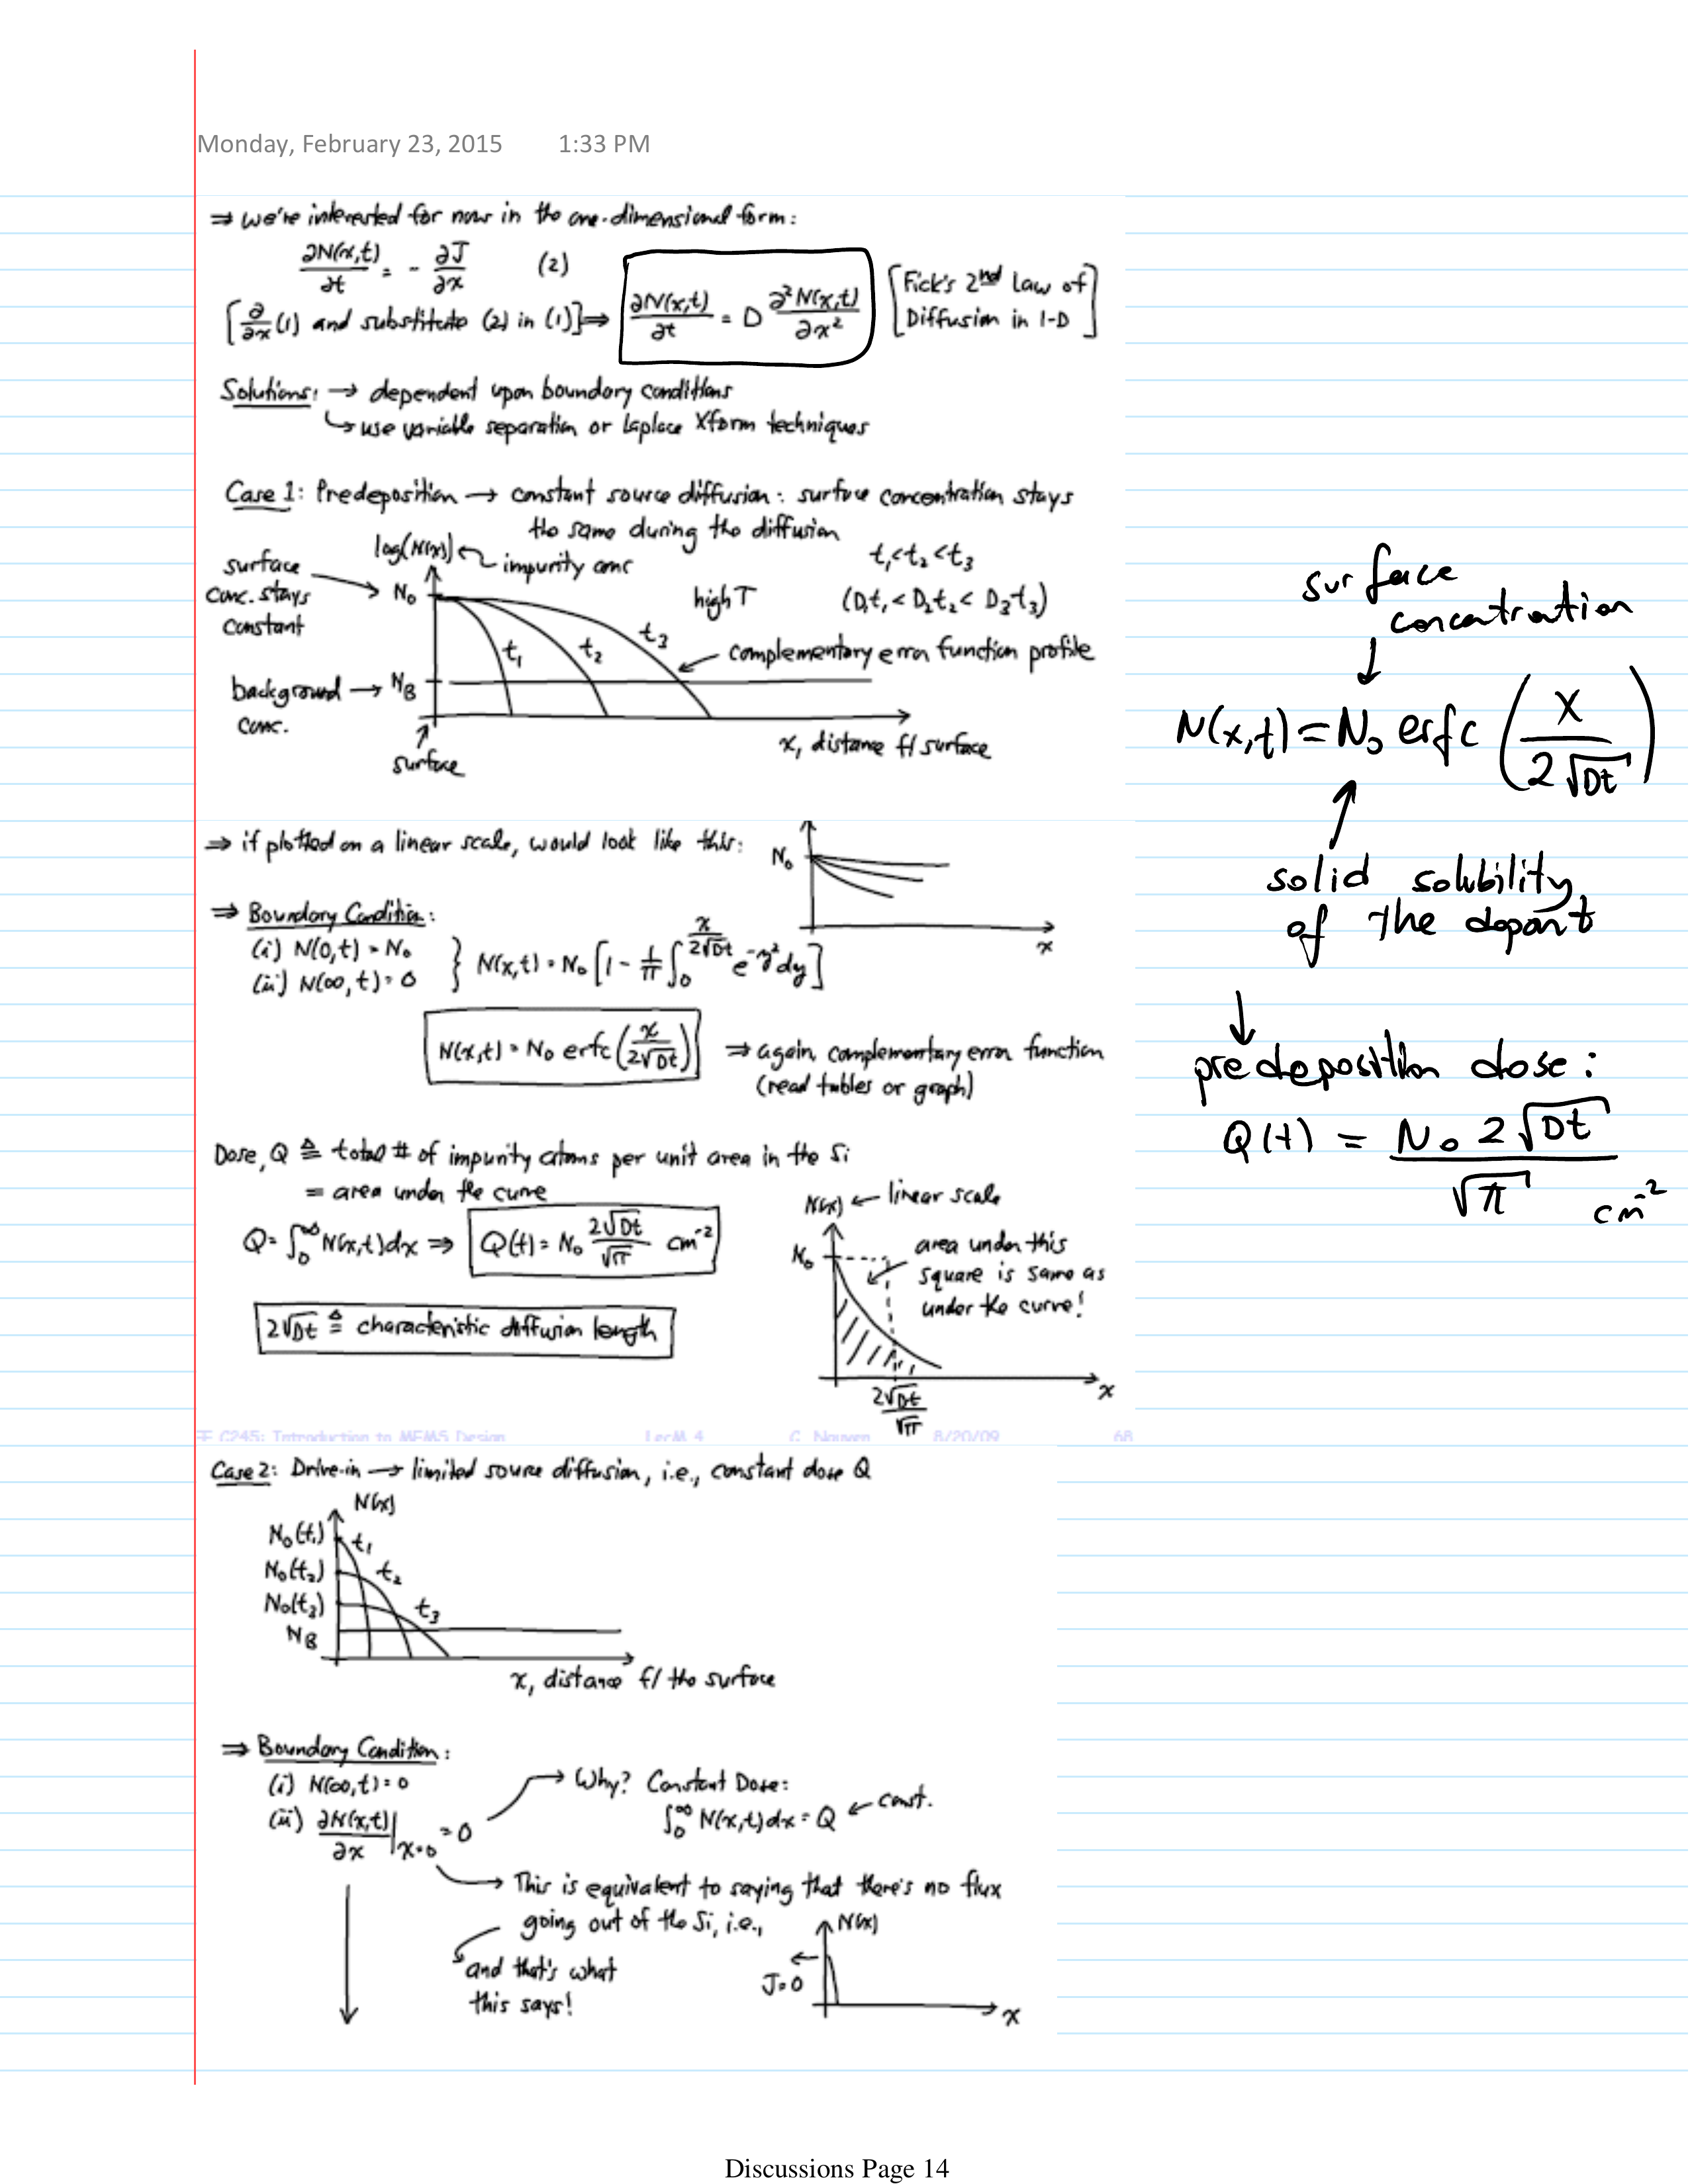 Monday, February 23, 2015 1:33 PM
⇒ we're interested for now in the one-dimensional form:
∂N(x,t)/∂t = - ∂J/∂x (2)
[∂/∂x (1) and substitute (2) in (1)] ⇒ ∂N(x,t)/∂t = D ∂²N(x,t)/∂x² [Fick's 2nd Law of Diffusion in 1-D]
Solutions: → dependent upon boundary conditions
↳ use variable separation or Laplace Xform techniques
Case 1: Predeposition → constant source diffusion: surface concentration stays
the same during the diffusion
log(N(x)) ← impurity conc
t₁<t₂<t₃
surface conc. stays constant → N₀
high T (D₁t₁ < D₂t₂ < D₃t₃)
t₁ t₂ t₃ ← complementary error function profile
background conc. → N_B
x, distance f/ surface
surface
⇒ if plotted on a linear scale, would look like this:
N₀
x
⇒ Boundary Condition:
(i) N(0,t) = N₀
(ii) N(∞,t) = 0
} N(x,t) = N₀ [1 - 1/π ∫₀^(x/2√Dt) e^-y² dy]
N(x,t) = N₀ erfc(x/2√Dt) ⇒ again, complementary error function
(read tables or graph)
Dose, Q ≜ total # of impurity atoms per unit area in the Si
= area under the curve
Q = ∫₀^∞ N(x,t)dx ⇒ Q(t) = N₀ 2√Dt/√π cm⁻²
2√Dt ≜ characteristic diffusion length
N(x) ← linear scale
N₀
area under this
square is same as
under the curve!
2√Dt/√π
x
C245: Introduction to MEMS Design LecM 4 C. Nguyen 8/20/09 68
Case 2: Drive-in → limited source diffusion, i.e., constant dose Q
N(x)
N₀(t₁) t₁
N₀(t₂) t₂
N₀(t₃) t₃
N_B
x, distance f/ the surface
⇒ Boundary Condition:
(i) N(∞,t) = 0
(ii) ∂N(x,t)/∂x |x=0 = 0
→ Why? Constant Dose:
∫₀^∞ N(x,t)dx = Q ← const.
→ This is equivalent to saying that there's no flux
going out of the Si, i.e.,
and that's what
this says!
N(x)
J=0
x
surface
concentration
↓
N(x,t) = N₀ erfc (x/2√Dt)
↑
solid solubility
of the dopant
↓
predeposition dose:
Q(t) = N₀ 2√Dt/√π cm⁻²
Discussions Page 14